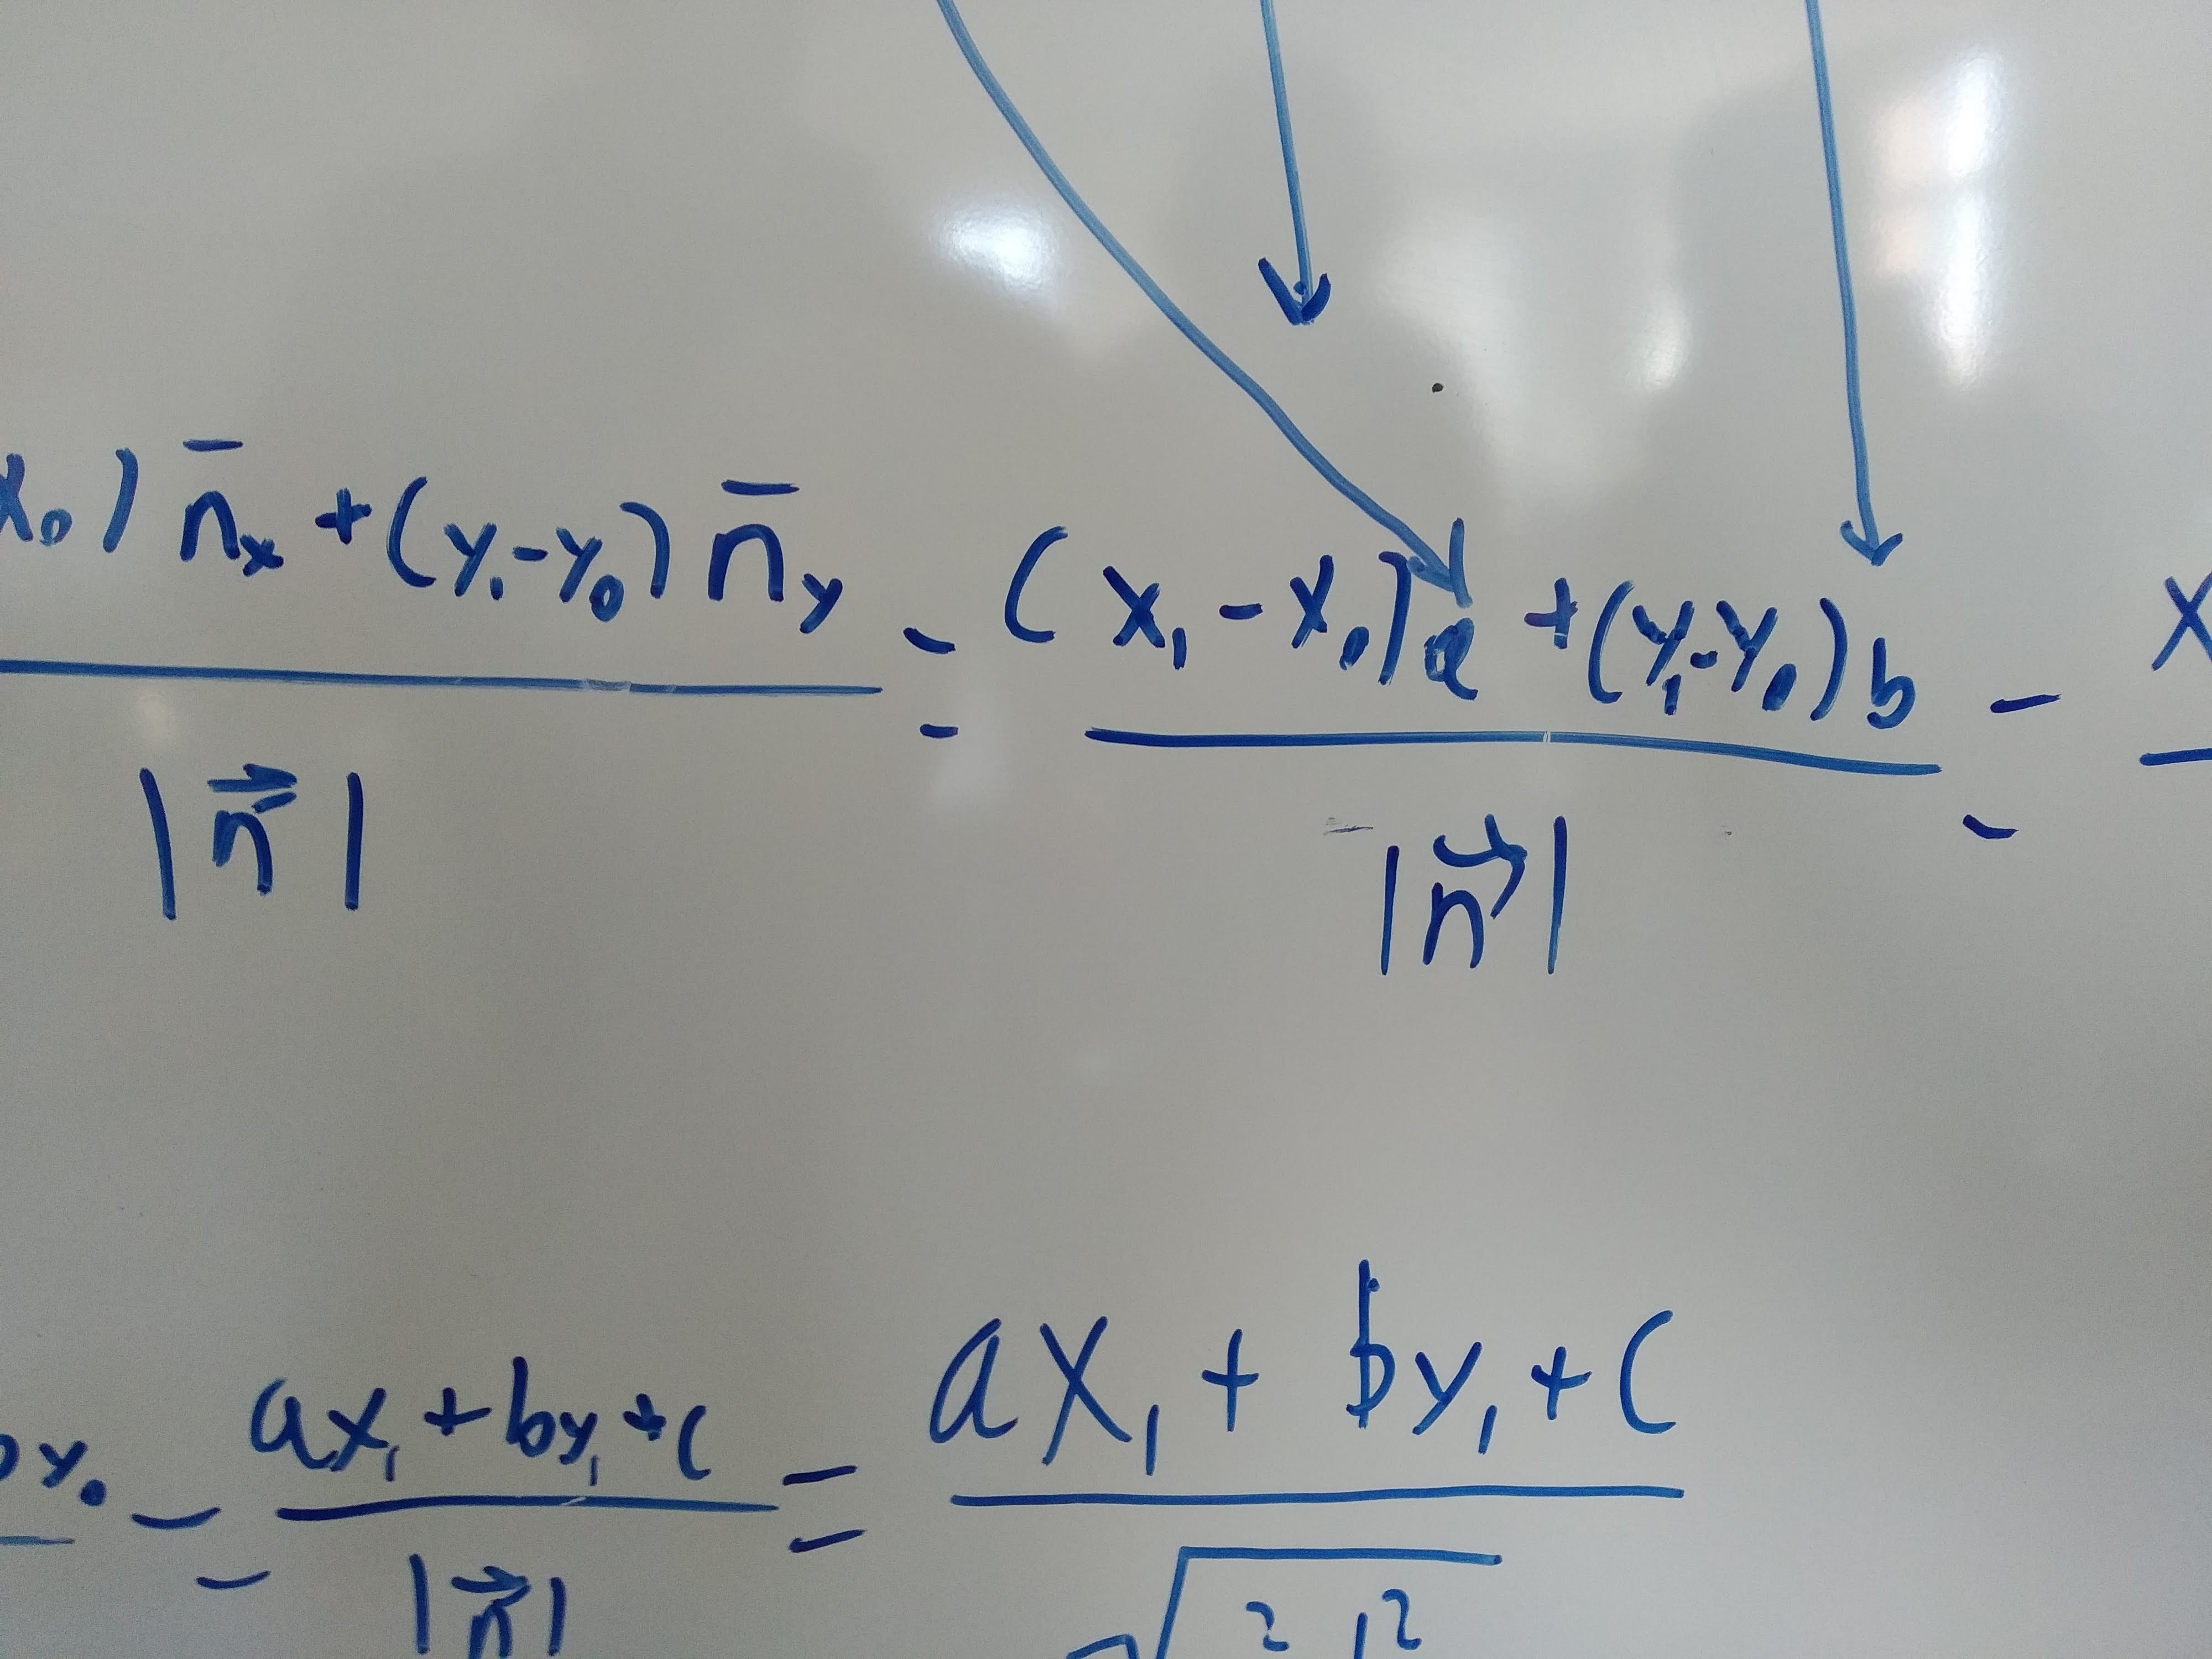 x₀) n̄ₓ + (y₁-y₀) n̄_y = (x₁ - x₀) a + (y₁-y₀) b = x
|n⃗| |n⃗|
y₀ = ax₁ + by₁ + c = ax₁ + by₁ + c
|n⃗| √ ² b²